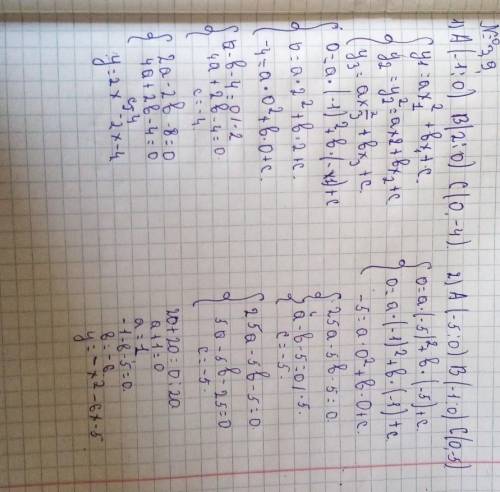 1) A(-1;0) B(2;0) C(0,-4)
y₁=ax₁²+bx₁+c
y₂=y₂²=ax2+bx₂+c
y₃=ax₃²+bx₃+c.
0=a·(-1)²+b·(-x1)+c
0=a·2²+b·2+c.
-4=a·0²+b·0+c.
a-b-4=0|·2
4a+2b-4=0
c=-4
2a-2b-8=0
4a+2b-4=0
y=2x²-2x-4
2) A(-5;0) B(-1;0) C(0,-5)
0=a(-5)²+b·(-5)+c.
0=a·(-1)²+b·(-1)+c.
-5=a·0²+b·0+c.
25a-5b-5=0.
a-b-5=0|·5.
c=-5.
25a-5b-5=0.
5a-5b-25=0
c=-5.
20+20=0:20
a+1=0
a=1
-1-b-5=0.
b=-6
y=-x²-6x-5.